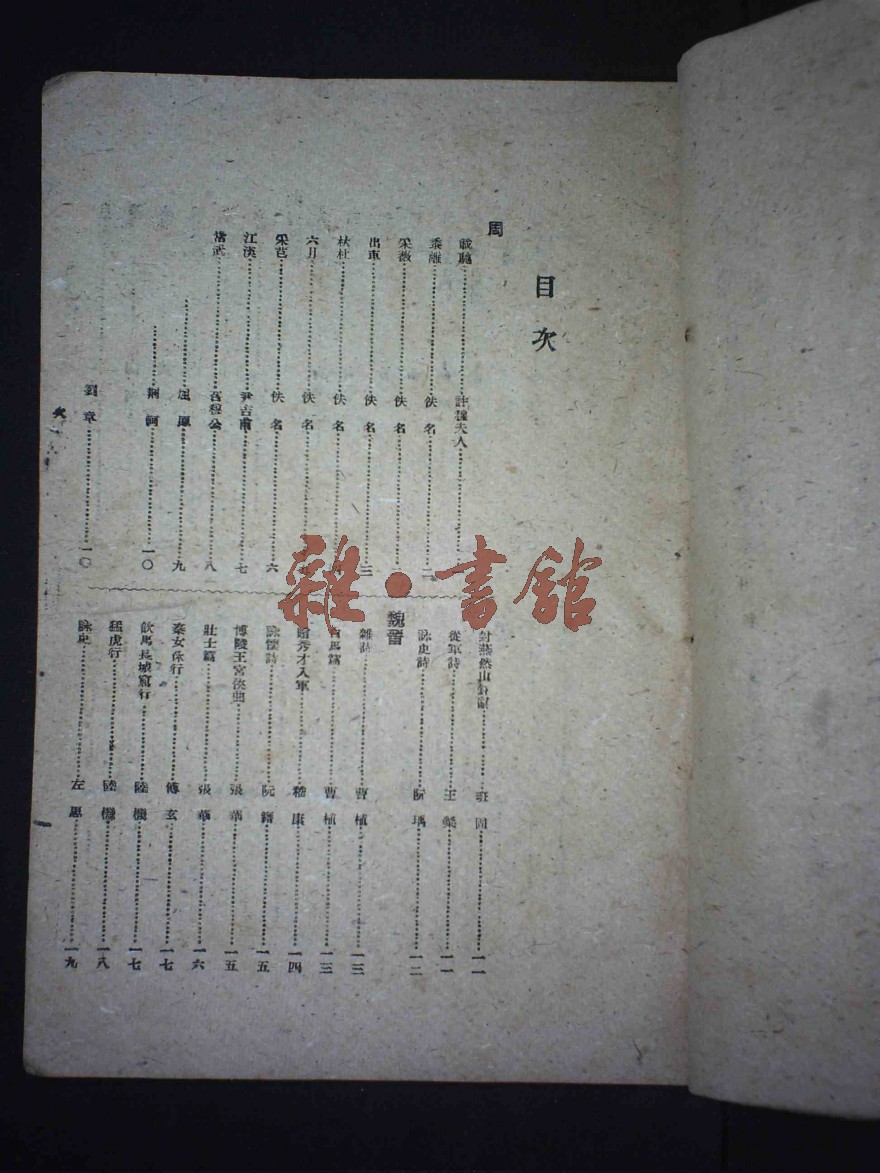 目次
周
載馳 許穆夫人
黍離 佚名 二
采薇 佚名
出車 佚名 三
杕杜 佚名
六月 佚名
采芑 佚名 六
江漢 尹吉甫 七
常武 召穆公 八
屈原 九
荊軻 一〇
劉章 一〇
封燕然山銘 班固 一一
從軍詩 王粲 一一
詠史詩 阮瑀 一二
魏晉
雜詩 曹植 一三
白馬篇 曹植 一三
秀才入軍 嵇康 一四
詠懷詩 阮籍 一五
博陵王宮俠曲 張華 一五
壯士篇 張華 一六
秦女休行 傅玄 一七
飲馬長城窟行 陸機 一七
猛虎行 陸機 一八
詠史 左思 一九
雜·書館